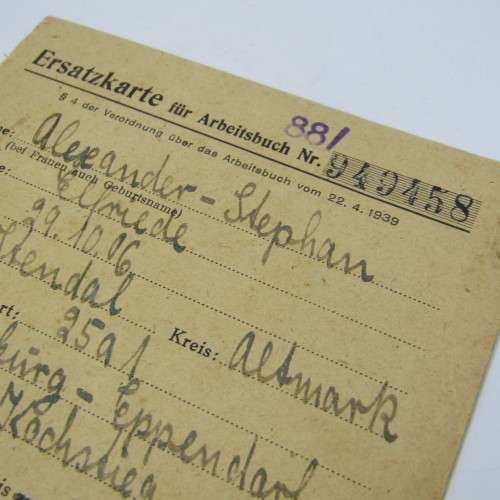 Ersatzkarte für Arbeitsbuch Nr. 949458
881
§ 4 der Verordnung über das Arbeitsbuch vom 22. 4. 1939
me: Alexander-Stephan
(bei Frauen auch Geburtsname)
e: Elfriede
29.10.06
Stendal
ort: 25a1 Kreis: Altmark
burg-Eppendorf
Kochstieg
is